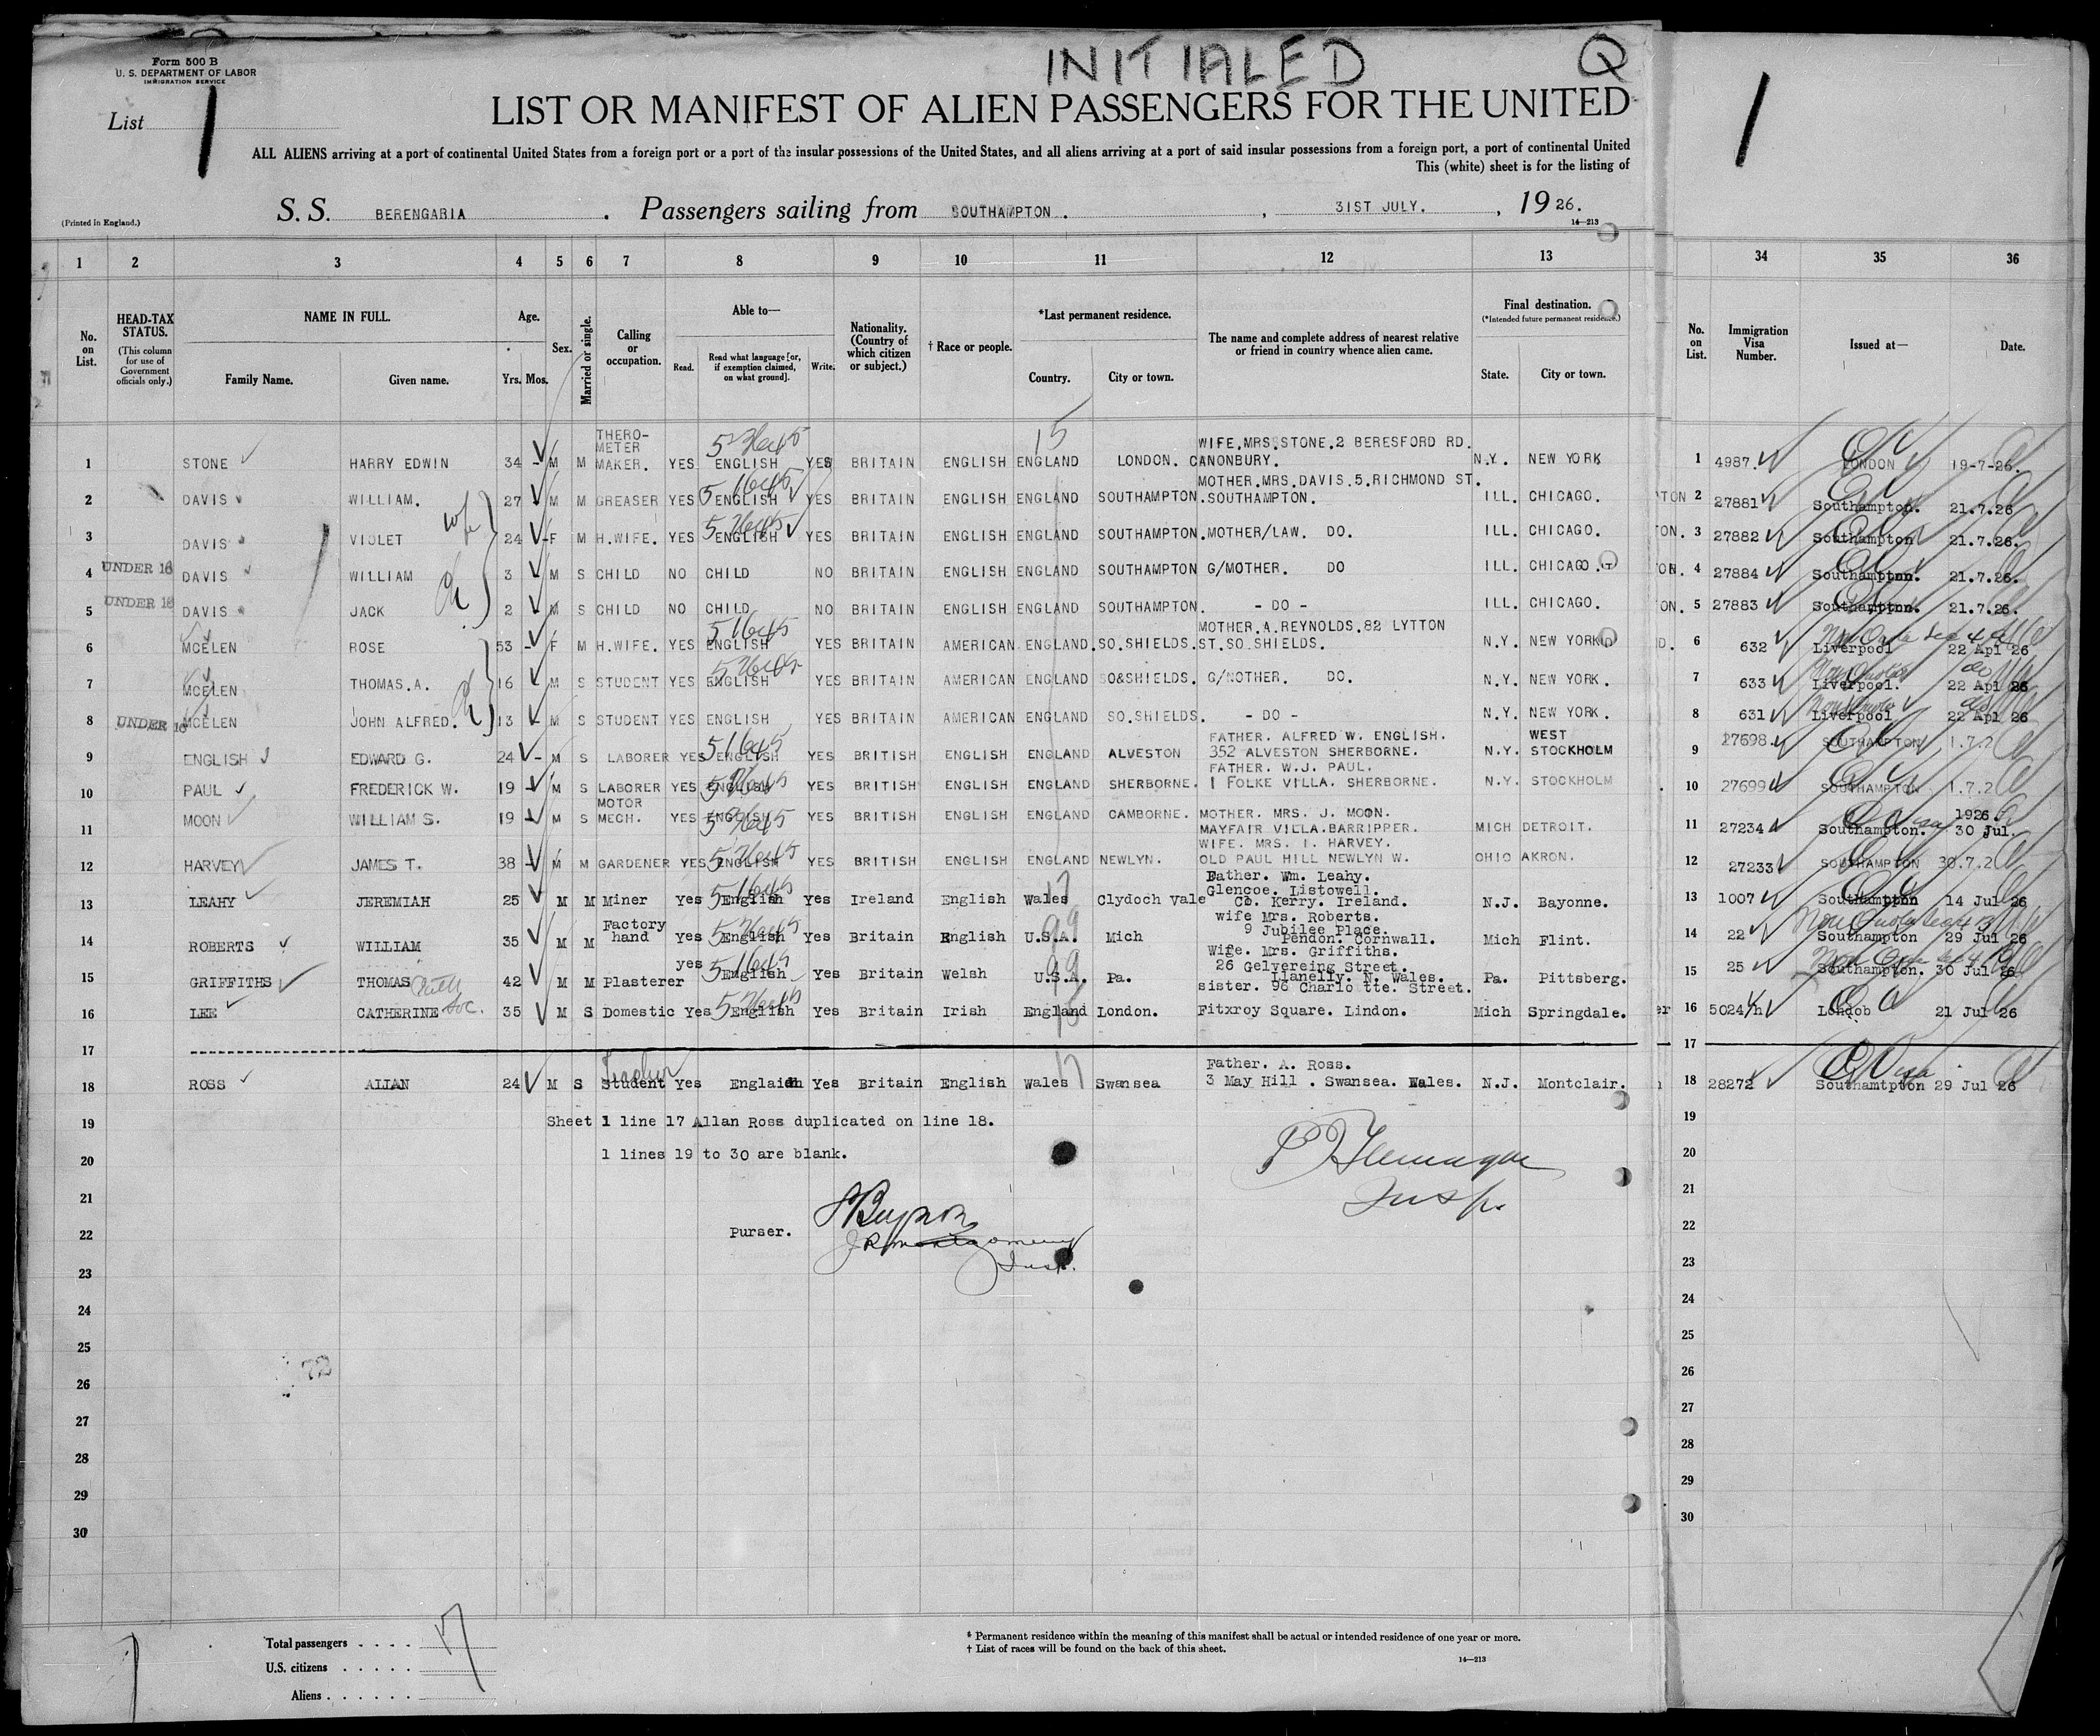 INITIALED Q
Form 500 B
U. S. DEPARTMENT OF LABOR
IMMIGRATION SERVICE
List 1
LIST OR MANIFEST OF ALIEN PASSENGERS FOR THE UNITED
1
ALL ALIENS arriving at a port of continental United States from a foreign port or a port of the insular possessions of the United States, and all aliens arriving at a port of said insular possessions from a foreign port, a port of continental United
This (white) sheet is for the listing of
S. S. BERENGARIA . Passengers sailing from SOUTHAMPTON . , 31ST JULY. , 19 26.
(Printed in England.)
14—213
1 2 3 4 5 6 7 8 9 10 11 12 13 34 35 36
HEAD-TAX STATUS.
(This column for use of Government officials only.)
No. on List.
NAME IN FULL.
Family Name. Given name.
Age.
Yrs. Mos.
Sex.
Married or single.
Calling or occupation.
Able to—
Read. Read what language [or, if exemption claimed, on what ground]. Write.
Nationality. (Country of which citizen or subject.)
† Race or people.
*Last permanent residence.
Country. City or town.
The name and complete address of nearest relative or friend in country whence alien came.
Final destination.
(*Intended future permanent residence.)
State. City or town.
No. on List.
Immigration Visa Number.
Issued at—
Date.
15
1 STONE HARRY EDWIN 34 - M M THERO-METER MAKER. YES ENGLISH YES BRITAIN ENGLISH ENGLAND LONDON. WIFE.MRS.STONE.2 BERESFORD RD. CANONBURY. N.Y. NEW YORK 1 4987. LONDON 19-7-26.
2 DAVIS WILLIAM. 27 - M M GREASER YES ENGLISH YES BRITAIN ENGLISH ENGLAND SOUTHAMPTON. MOTHER.MRS.DAVIS.5.RICHMOND ST. SOUTHAMPTON. ILL. CHICAGO. 2 27881 Southampton. 21.7.26
3 DAVIS VIOLET wife 24 - F M H.WIFE. YES ENGLISH YES BRITAIN ENGLISH ENGLAND SOUTHAMPTON. MOTHER/LAW. DO. ILL. CHICAGO. 3 27882 Southampton 21.7.26.
4 UNDER 16 DAVIS WILLIAM 3 - M S CHILD NO CHILD NO BRITAIN ENGLISH ENGLAND SOUTHAMPTON G/MOTHER. DO ILL. CHICAGO. 4 27884 Southampton. 21.7.26.
5 UNDER 16 DAVIS JACK 2 - M S CHILD NO CHILD NO BRITAIN ENGLISH ENGLAND SOUTHAMPTON. - DO - ILL. CHICAGO. 5 27883 Southampton. 21.7.26.
6 MCELEN ROSE 53 - F M H.WIFE. YES ENGLISH YES BRITAIN AMERICAN ENGLAND. SO.SHIELDS. MOTHER.A.REYNOLDS.82 LYTTON ST.SO.SHIELDS. N.Y. NEW YORK 6 632 Liverpool 22 Apl 26
7 MCELEN THOMAS.A. 16 - M S STUDENT YES ENGLISH YES BRITAIN AMERICAN ENGLAND SO&SHIELDS. G/MOTHER. DO. N.Y. NEW YORK. 7 633 Liverpool. 22 Apl 26
8 UNDER 16 MCELEN JOHN ALFRED. 13 - M S STUDENT YES ENGLISH YES BRITAIN AMERICAN ENGLAND SO.SHIELDS. - DO - N.Y. NEW YORK. 8 631 Liverpool 22 Apl 26
9 ENGLISH EDWARD G. 24 - M S LABORER YES ENGLISH YES BRITISH ENGLISH ENGLAND ALVESTON FATHER. ALFRED W. ENGLISH. 352 ALVESTON SHERBORNE. N.Y. WEST STOCKHOLM 9 27698. SOUTHAMPTON 1.7.2
10 PAUL FREDERICK W. 19 - M S LABORER YES ENGLISH YES BRITISH ENGLISH ENGLAND SHERBORNE. FATHER. W.J. PAUL. 1 FOLKE VILLA. SHERBORNE. N.Y. STOCKHOLM 10 27699 SOUTHAMPTON 1.7.2
11 MOON WILLIAM S. 19 - M S MOTOR MECH. YES ENGLISH YES BRITISH ENGLISH ENGLAND CAMBORNE. MOTHER. MRS. J. MOON. MAYFAIR VILLA.BARRIPPER. MICH DETROIT. 11 27234 Southampton. 1926. 30 Jul.
12 HARVEY JAMES T. 38 - M M GARDENER YES ENGLISH YES BRITISH ENGLISH ENGLAND NEWLYN. WIFE. MRS. I. HARVEY. OLD PAUL HILL NEWLYN W. OHIO AKRON. 12 27233 SOUTHAMPTON 30.7.2
13 LEAHY JEREMIAH 25 M M Miner Yes English Yes Ireland English Wales Clydoch Vale Father. Wm. Leahy. Glencoe. Listowell. Co. Kerry. Ireland. N.J. Bayonne. 13 1007 Southampton 14 Jul 26
14 ROBERTS WILLIAM 35 M M Factory hand Yes English Yes Britain English U.S.A. Mich wife Mrs. Roberts. 9 Jubilee Place. Pendon. Cornwall. Mich Flint. 14 22 Southampton 29 Jul 26
15 GRIFFITHS THOMAS 42 M M Plasterer yes English Yes Britain Welsh U.S.A. Pa. Wife. Mrs. Griffiths. 26 Gelvereing Street. Llanelly. N. Wales. Pa. Pittsberg. 15 25 Southampton. 30 Jul 26
16 LEE CATHERINE 35 M S Domestic Yes English Yes Britain Irish England London. sister. 96 Charlo tte. Street. Fitxroy Square. Lindon. Mich Springdale. 16 5024 Londob 21 Jul 26
17 17
18 ROSS ALIAN 24 M S Student Yes English Yes Britain English Wales Swansea Father. A. Ross. 3 May Hill . Swansea. Wales. N.J. Montclair. 18 28272 Southamtpton 29 Jul 26
19 Sheet 1 line 17 Allan Ross duplicated on line 18. 19
20 1 lines 19 to 30 are blank. 20
21 Insp. 21
22 Purser. 22
23 Insp. 23
24 24
25 25
26 72 26
27 27
28 28
29 29
30 30
Total passengers . . . . 17
U.S. citizens . . . . .
Aliens . . . . . .
* Permanent residence within the meaning of this manifest shall be actual or intended residence of one year or more.
† List of races will be found on the back of this sheet.
14—213